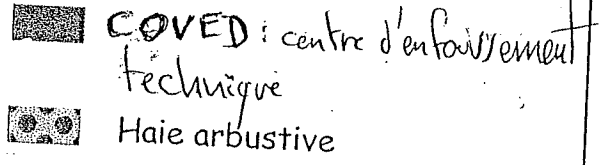 COVED : centre d'enfouissement
technique
Haie arbustive